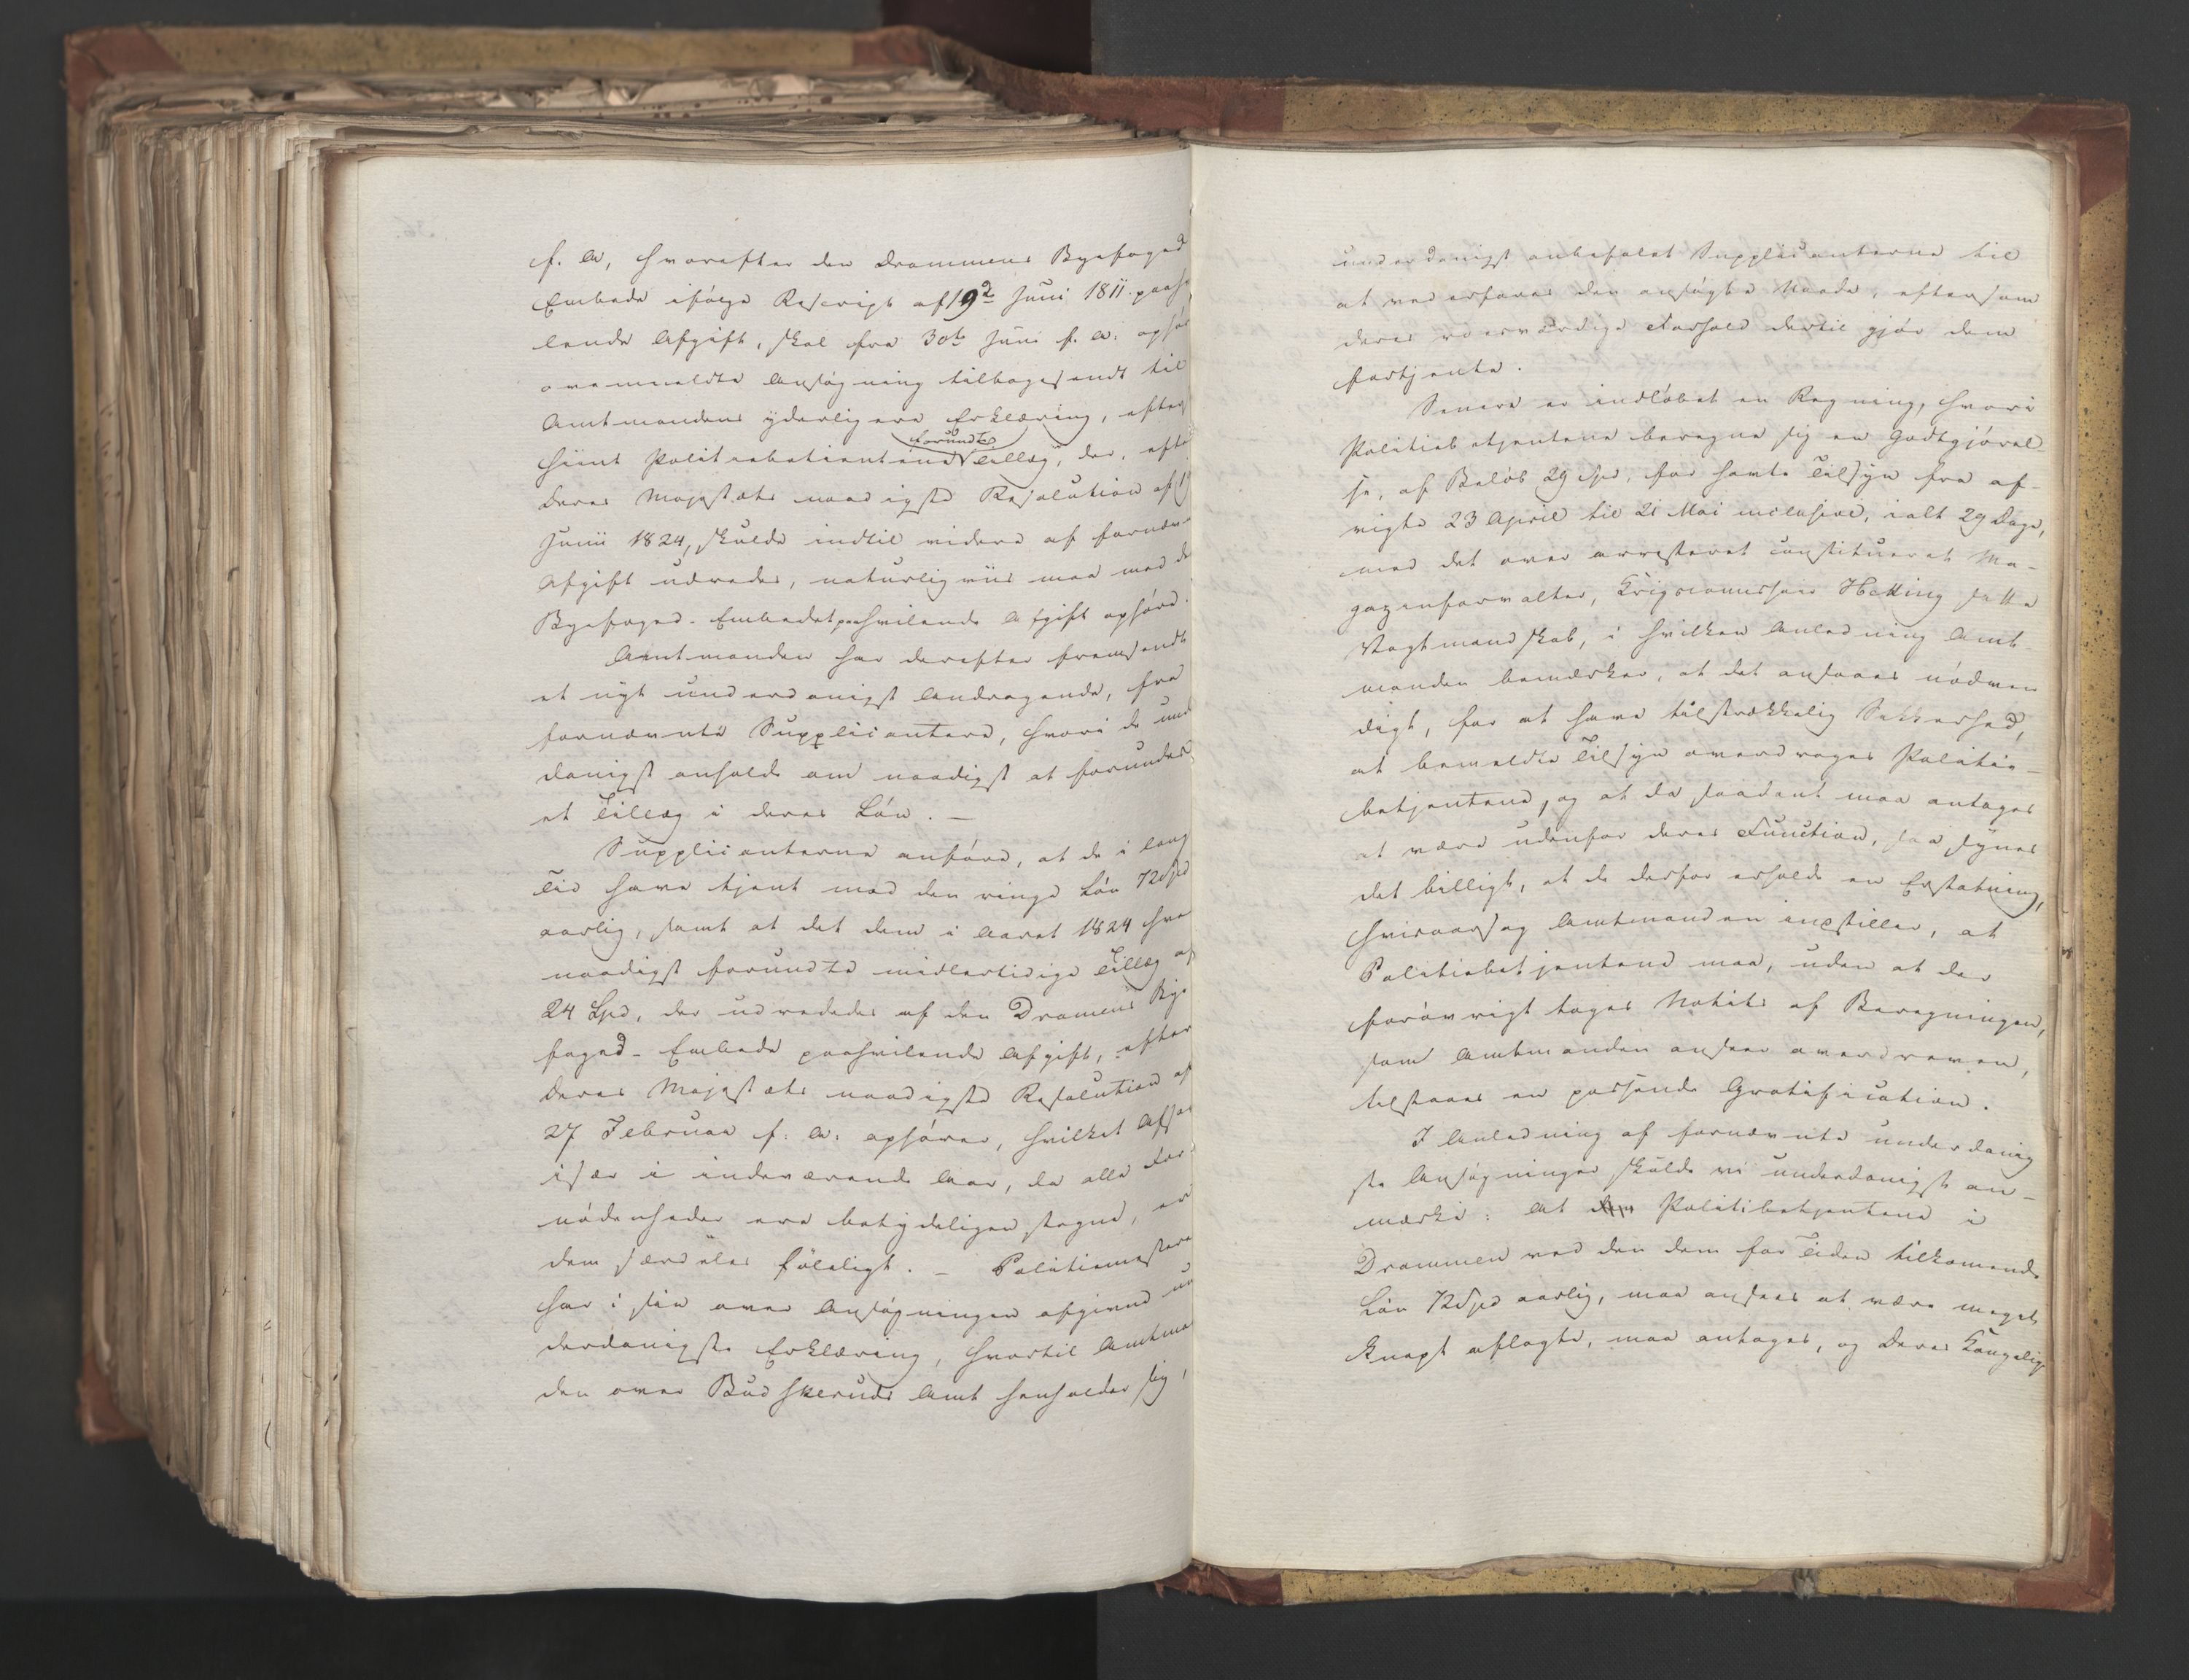 f. A, hvorefter den Drammens Byefoged
Embede ifølge Rescript af 19de Juni 1811 paahvi
lende Afgift, skal fra 30te Juni f. A: ophø
ovenmeldte Ansøgning tilbagesendt til
Amtmandens yderligere Erklæring, efter
hiint Politiebetientene forundte Tillæg, der, efter
Deres Majestæts naadigste Resolution af 1
Junii 1824, skulde indtil videre af fornævn
Afgift udredes, naturligviis maa med de
Byefoged-Embedet paahvilende Afgift ophøre.
Amtmanden har derefter fremsendt
et nyt underdanigst Andragende, fra
fornævnte Supplicantere, hvori de und
danigst anholde om naadigst at forundes
et Tillæg i deres Løn. —
Supplicanterne anføre, at de i lang
Tid have tjent med den ringe Løn 72 Spd
aarlig, samt at det dem i Aaret 1824 hvo
naadigst forundte midlertidige Tillæg af
24 Spd, der udrededes af den Dramens Bye
foged-Embede paahvilende Afgift, efter
Deres Majestæts naadigste Resolution af
27 Februar f: A: ophører, hvilket Afsa
især i indeværende Aar, da alle For
nødenheder ere betydeligen stegne, er
dem særdeles føleligt. — Politiemestere
har i sin over Ansøgningen afgivne un
derdanigste Erklæring, hvortil Amtma
den over Budskeruds Amt henholder sig,
underdanigst anbefalet Supplicanterne til
at vederfares den ansøgte Naade, eftersom
deres roesværdige Forhold dertil gjør dem
fortjente.
Senere er indløbet en Regning, hvori
Politiebetjentene beregne sig en Godtgjørel-
se, af Beløb 29 Spd, for havte Tilsyn fra af-
vigte 23 April til 21 Mai inclusive, ialt 29 Dage,
med det over arresteret constitueret Ma-
gazinforvalter, Krigscommissair Hetting satte
Vagtmandskab, i hvilken Anledning Amt-
manden bemærker, at det ansaaes nødven
digt, for at have tilstrækkelig Sikkerhed,
at bemeldte Tilsyn overdroges Politie-
betjentene, og at da saadant maa antages
at være udenfor deres Function, saa synes
det billigt, at de derfor erholde en Erstatning,
hvisaarsag Amtmanden indstiller, at
Politiebetjentene maa, uden at der
forøvrigt tages Notits af Beregningen,
som Amtmanden anseer overdreven,
tilstaaes en passende Gratification.
I Anledning af fornævnte underdanig
ste Ansøgninger skulde vi underdanigst an-
mærke: at Politibetjentene i
Drammen ved den dem for Tiden tilkomende
Løn 72 Spd aarlig, maa ansees at være meget
knapt aflagte, maa antages, og Deres Kongelige